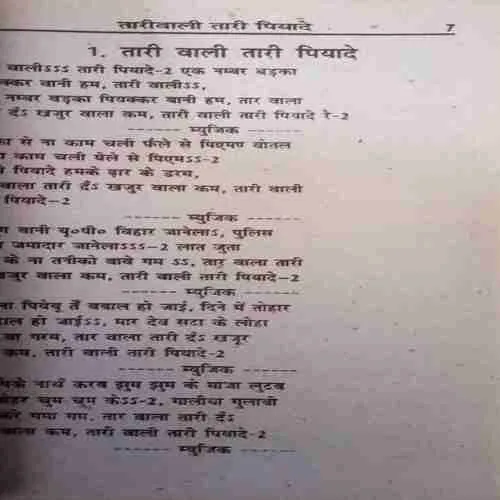 तारीवाली तारी पियादे 7
1. तारी वाली तारी पियादे
वालीऽऽऽ तारी पियादे-2 एक नम्बर बड़का
क्कर बानी हम, तारी वालीऽऽ,
नम्बर बड़का पियक्कर बानी हम, तार वाला
दँऽ खजुर वाला कम, तारी वाली तारी पियादे रे-2
------ म्युजिक ------
से ना काम चली फैले से पिएम बोतल
काम चली पैले से पिएमऽऽ-2
पियादे हमके ढ़ार के डरम,
वाला तारी दँऽ खजुर वाला कम, तारी वाली
पियादे-2
------ म्युजिक ------
बानी यू०पी० बिहार जानेलाऽ, पुलिस
जमादार जानेलाऽऽऽ-2 लात जुता
के ना तनीको बावे गम ऽऽ, तार वाला तारी
खजुर वाला कम, तारी वाली तारी पियादे-2
------ म्युजिक ------
ना पियेबू तँ बवाल हो जाई, दिने में तोहार
हो जाईऽऽ, मार देव सटा के लोहा
गरम, तार वाला तारी दँऽ खजूर
कम, तारी वाली तारी पियादे-2
------ म्युजिक ------
के नाचँ करब झुम झुम के माजा लुटब
चुम चुम केऽऽ-2, गालीया गुलाबी
करे गमा गम, तार वाला तारी दँऽ
वाला कम, तारी वाली तारी पियादे-2
------ म्युजिक ------